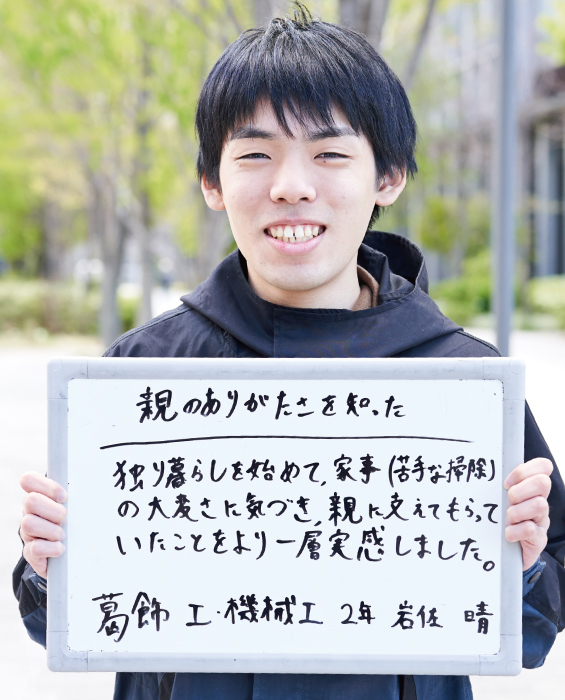 親のありがたさを知った
独り暮らしを始めて、家事(苦手な掃除)
の大変さに気づき、親に支えてもらって
いたことをより一層実感しました。
葛飾 工・機械工 2年 岩佐 晴